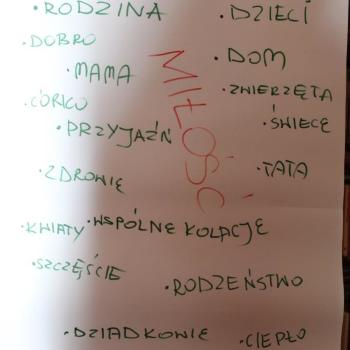 • RODZINA
• DZIECI
• DOBRO
• DOM
• MAMA
• ZWIERZĘTA
• CÓRKU
• ŚWIECE
• PRZYJAŹŃ
MIŁOŚĆ
• ZDROWIE
• TATA
• KWIATY
• WSPÓLNE KOLACJE
• SZCZĘŚCIE
• RODZEŃSTWO
• DZIADKOWIE
• CIEPŁO